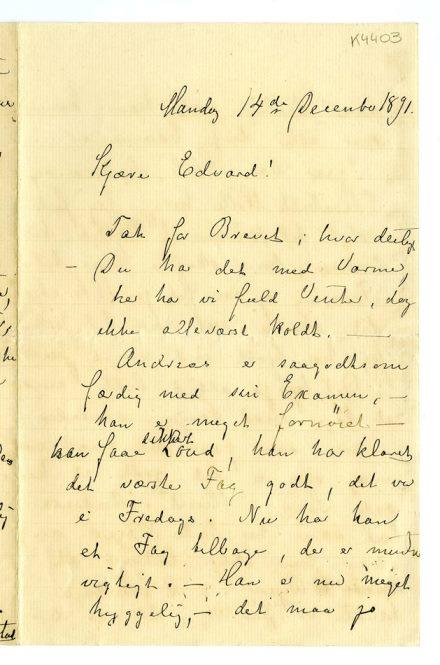 K4403
Mandag 14de Decembr 1891.
Kjære Edvard!
Tak for Brevet, hvor deiligt
– Du har det med Varme,
her har vi fuld Vinter, dog
ikke alleværst koldt. —
Andreas er saagodtsom
færdig med sin Examen, –
han er meget fornöiet –
kan faae sikkert Loud, han har klaret
det værste Fag godt, det var
i Fredags. Nu har han
et Fag tilbage, der er mindre
vigtigt. – Han er nu meget
hyggelig, – det maa jo